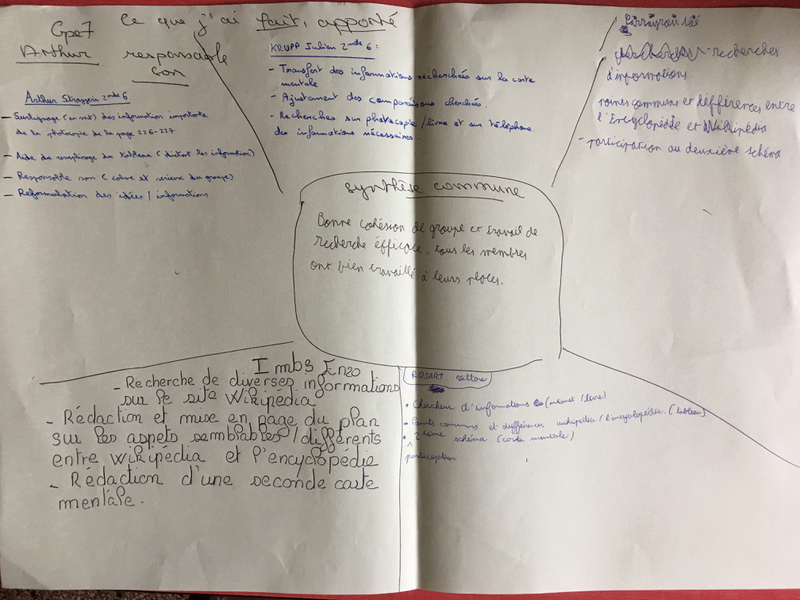 Gpe7 Ce que j'ai fait, apporté
Arthur responsable
son
Arthur 2nde 6
- (en net) des information importante
de la photocopie de la page 226-227
- Aide au remplissage du tableau (dictant les informations)
- Responsable son (calme et serieux du groupe)
- Reformulation des idées / informations
KRUPP Julien 2nde 6 :
- Transfert des informations recherchées sur la carte
mentale
- Ajustement des comparaisons cherchées.
- Recherches sur photocopie / livre et sur téléphone
des informations nécessaires
- recherches
d'informations
points communs et différences entre
l'Encyclopédie et Wikipédia
- participation au deuxième schéma
Synthèse commune
Bonne cohésion de groupe et travail de
recherche éfficace, tous les membres
ont bien travaillé à leurs places.
Imbs Enzo
- Recherche de diverses informations
sur le site Wikipédia
- Rédaction et mise en page du plan
sur les aspets semblables / différents
entre Wikipédia et l'encyclopédie
- Rédaction d'une seconde carte
mentale.
ROSART
• Chercheur d'informations (internet / livre)
• Points communs et différences wikipédia / l'encyclopédie. (tableau)
• 2ième schéma (carte mentale)
participation